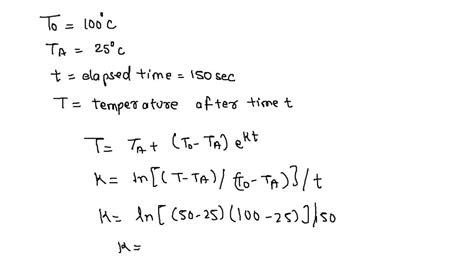 T0 = 100°C
TA = 25°C
t = elapsed time = 150 sec
T = temperature after time t
T = TA + (T0 - TA) e^kt
K = ln[(T-TA)/(T0-TA)]/t
K = ln[(50-25)(100-25)]/150
K =